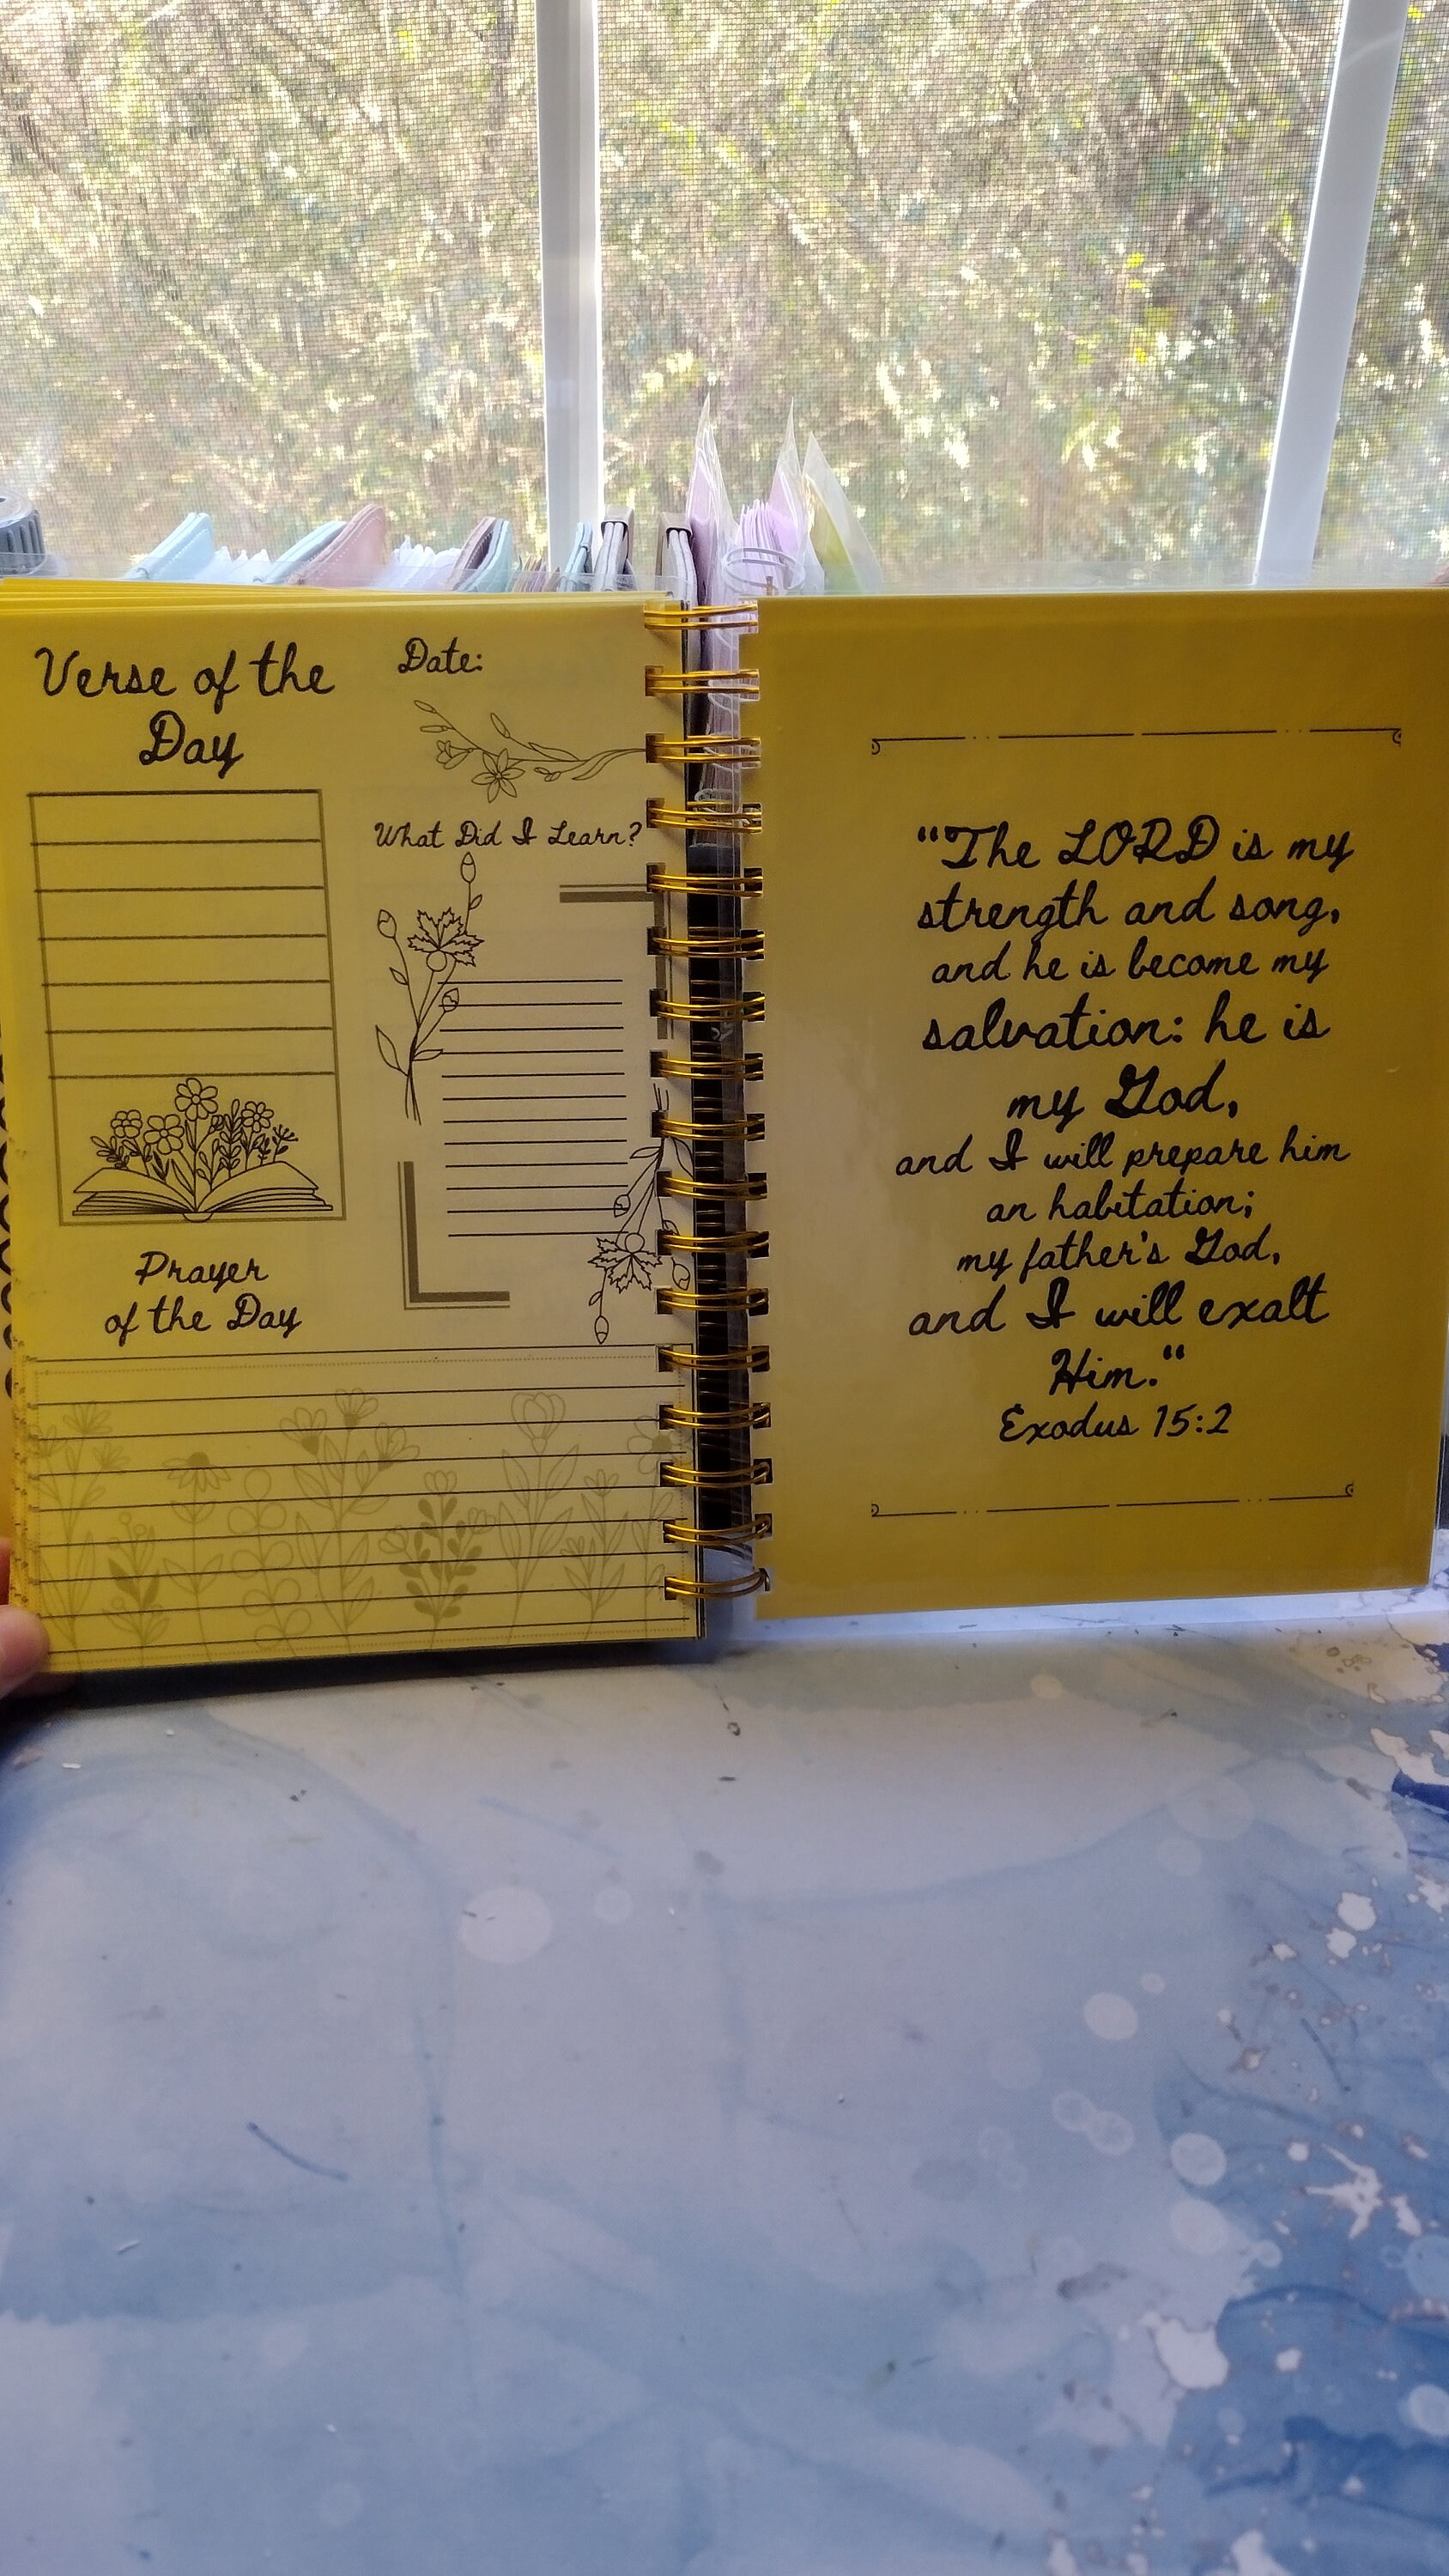 Verse of the
Day
Date:
What Did I Learn?
Prayer
of the Day
"The LORD is my
strength and song,
and he is become my
salvation: he is
my God,
and I will prepare him
an habitation;
my father's God,
and I will exalt
Him."
Exodus 15:2